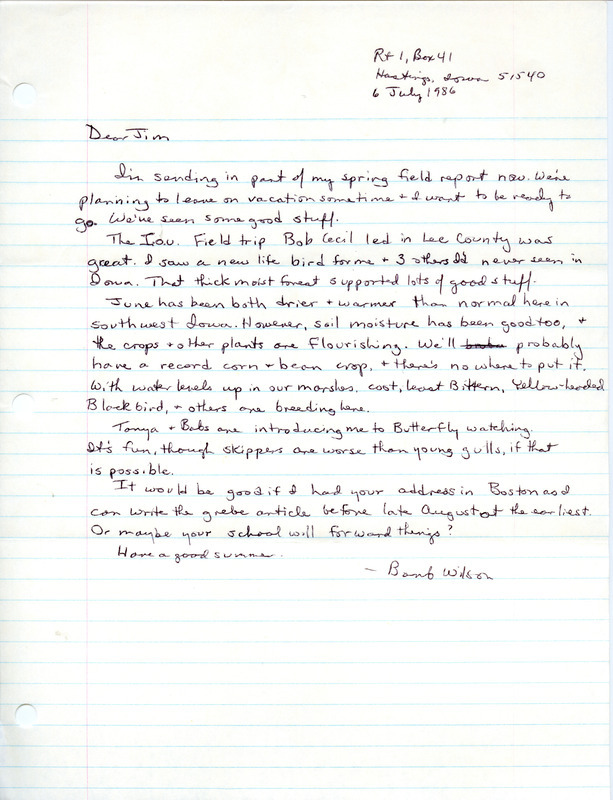 Rt 1, Box 41
Hastings, Iowa 51540
6 July 1986
Dear Jim
I'm sending in part of my spring field report now. We're
planning to leave on vacation sometime + I want to be ready to
go. We've seen some good stuff.
The I.O.U. Field trip Bob Cecil led in Lee County was
great. I saw a new life bird for me + 3 others I'd never seen in
Iowa. That thick moist forest supported lots of good stuff.
June has been both drier + warmer than normal here in
southwest Iowa. However, soil moisture has been good too, +
the crops + other plants are flourishing. We'll probably
have a record corn + bean crop, + there's no where to put it.
With water levels up in our marshes, coot, Least Bittern, Yellow-headed
Blackbird, + others are breeding here.
Tanya + Babs are introducing me to Butterfly watching.
It's fun, though skippers are worse than young gulls, if that
is possible.
It would be good if I had your address in Boston so I
can write the grebe article before late August at the earliest.
Or maybe your school will forward things?
Have a good summer.
- Barb Wilson